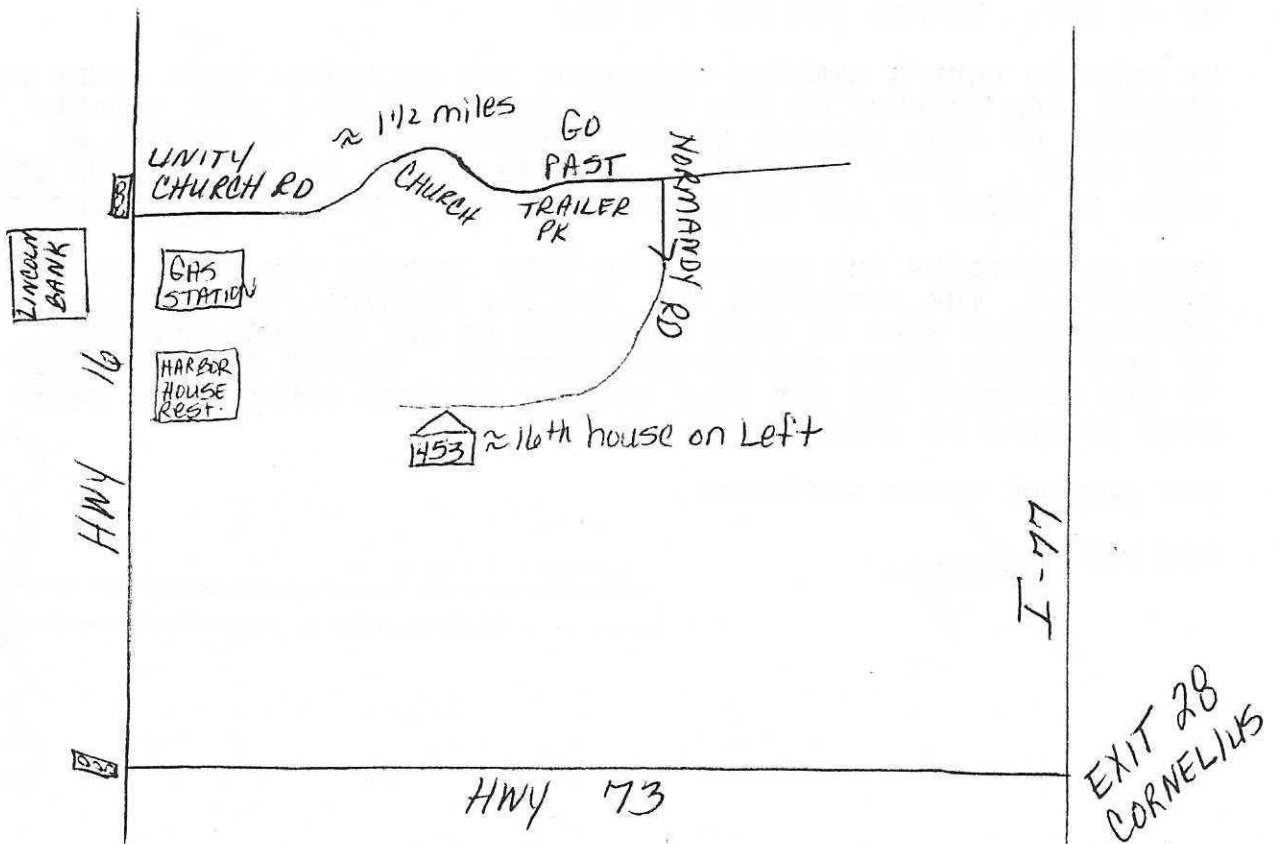 ≈ 1 1/2 miles
GO
PAST
UNITY
CHURCH RD
CHURCH
TRAILER
PK
NORMANDY RD
LINCOLN
BANK
GAS
STATION
HARBOR
HOUSE
REST.
HWY 16
1453 ≈ 16th house on Left
I-77
EXIT 28
CORNELIUS
HWY 73